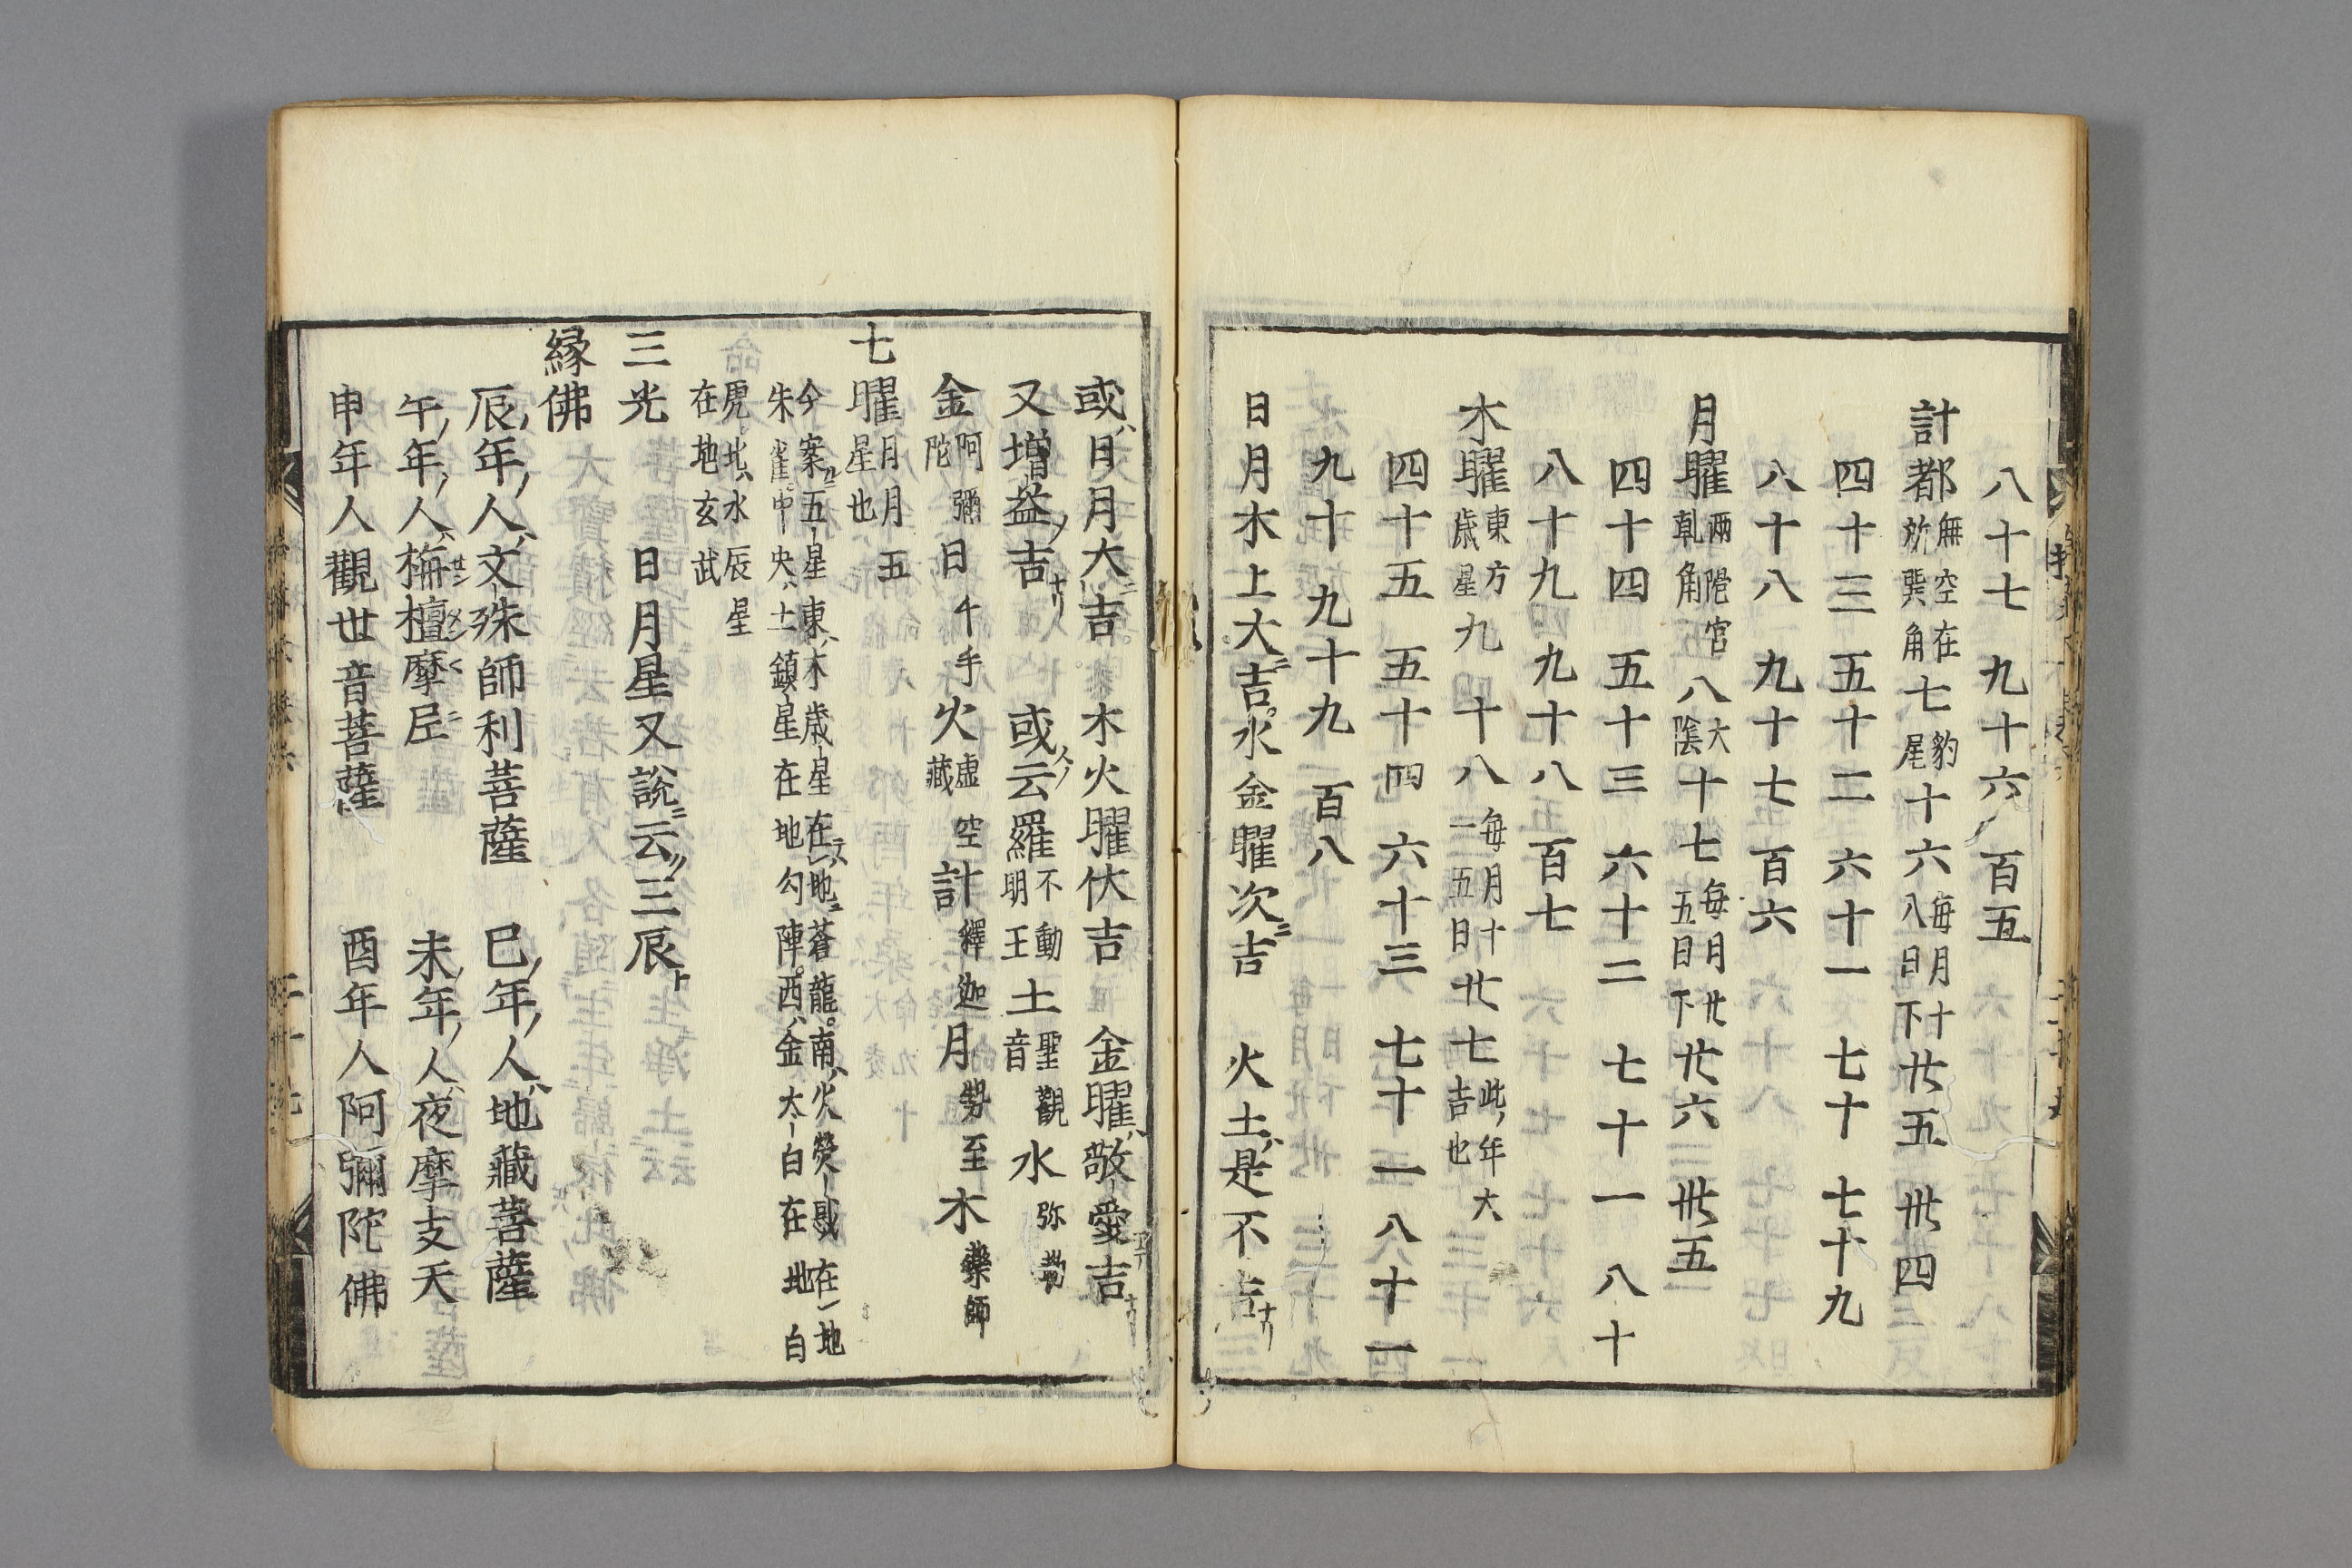 八十七 九十六 百五
計都 無空在効巽角 七 豹尾 十六 毎月十八日下 廿五 卅四
四十三 五十二 六十一 七十 七十九
八十八 九十七 百六
月曜 兩陞宮乹角 八 大陰 十七 毎月廿五日下 廿六 卅五
四十四 五十三 六十二 七十一 八十
八十九 九十八 百七
木曜 東方歳星 九 十八 毎月十一二五日 廿七 此年大吉也
四十五 五十四 六十三 七十一 八十一
九十 九十九 百八
日月木上大吉水金曜次吉 火土是不吉
或日月大吉 木火曜伏吉 金曜敬愛吉
又増益吉 或云羅 不動明王 土 聖觀音 水 弥勒
金 阿彌陀 日 千手 火 虚空藏 計 釋迦 月 勢至 木 藥師
七曜 日月五星也
今案五星東木歳星在地蒼龍南火熒惑在地
朱雀中央土鎮星在地勾陣西金太白在地白
虎北水辰星
在地玄武
三光 日月星又説云三辰
縁佛
辰年人文殊師利菩薩 巳年人地藏菩薩
午年人栴檀摩尼 未年人夜摩支天
申年人觀世音菩薩 酉年人阿彌陀佛